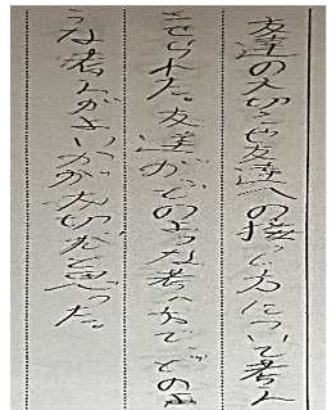 友達の大切さや友達への接し方について考え
させられた。友達がどのような考え方で、どのよ
うな考えがよいかが大切だと思った。